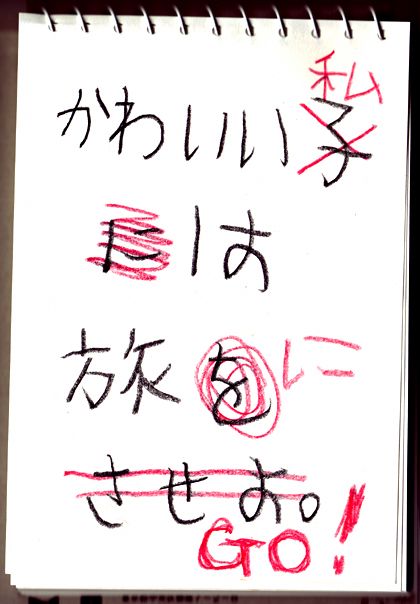 私
かわいい子
には
旅をに
させよ。
GO!